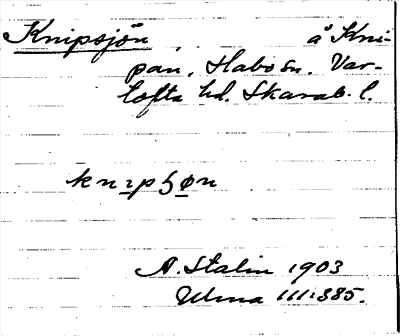 Knipsjön, å Kni-
pan, Habo sn. Var-
tofta hd. Skarab. l.
knıpʂøn
A. Stalin 1903
Ulma 111:385.